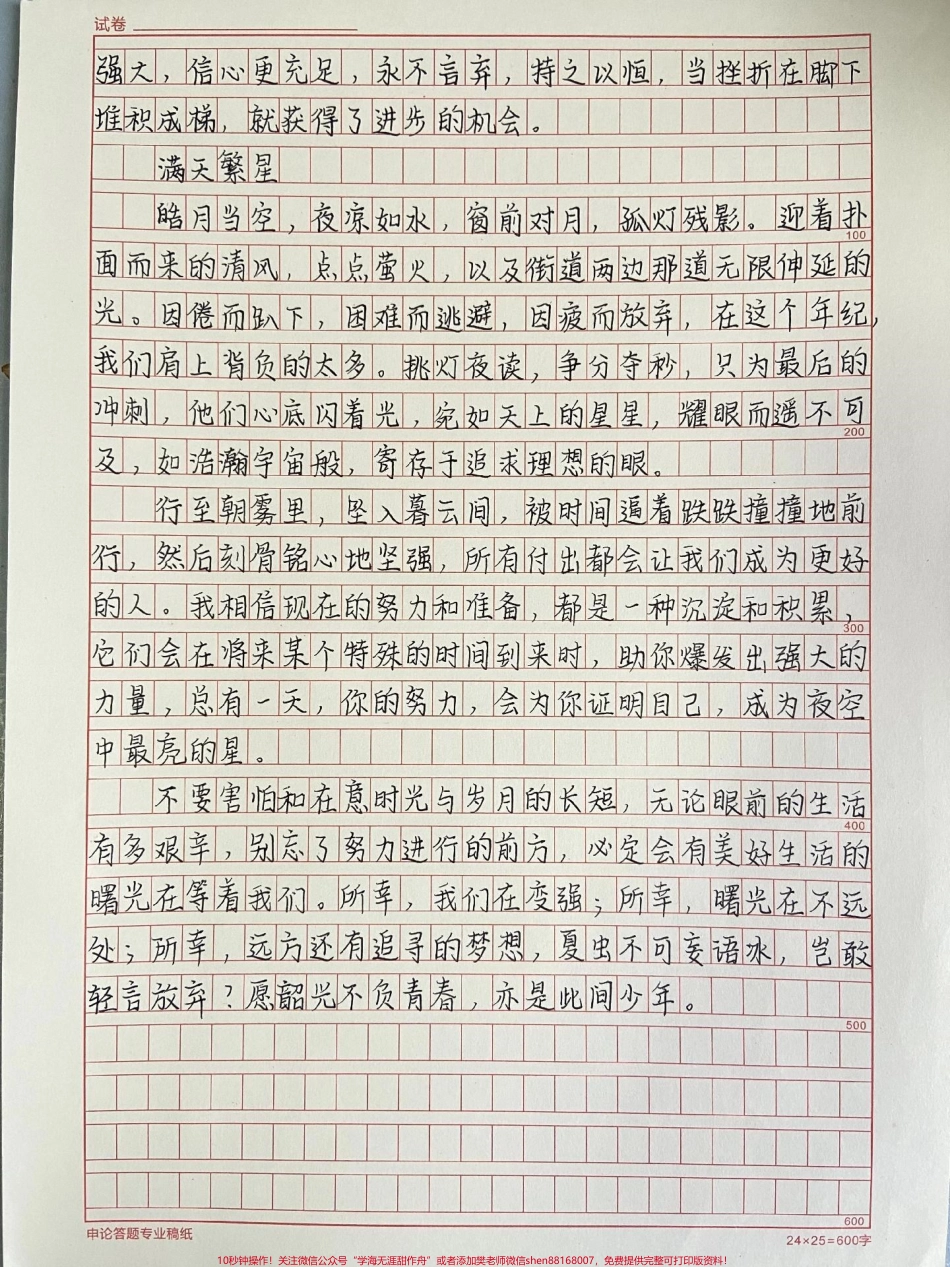 试卷
强大，信心更充足，永不言弃，持之以恒，当挫折在脚下
堆积成梯，就获得了进步的机会。
满天繁星
皓月当空，夜凉如水，窗前对月，孤灯残影。迎着扑
100
面而来的清风，点点萤火，以及街道两边那道无限伸延的
光。因倦而趴下，困难而逃避，因疲而放弃，在这个年纪，
我们肩上背负的太多。挑灯夜读，争分夺秒，只为最后的
冲刺，他们心底闪着光，宛如天上的星星，耀眼而遥不可
200
及，如浩瀚宇宙般，寄存于追求理想的眼。
行至朝雾里，坠入暮云间，被时间逼着跌跌撞撞地前
行，然后刻骨铭心地坚强，所有付出都会让我们成为更好
的人。我相信现在的努力和准备，都是一种沉淀和积累，
300
它们会在将来某个特殊的时间到来时，助你爆发出强大的
力量，总有一天，你的努力，会为你证明自己，成为夜空
中最亮的星。
不要害怕和在意时光与岁月的长短，无论眼前的生活
400
有多艰辛，别忘了努力进行的前方，必定会有美好生活的
曙光在等着我们。所幸，我们在变强；所幸，曙光在不远
处；所幸，远方还有追寻的梦想，夏虫不可妄语冰，岂敢
轻言放弃？愿韶光不负青春，亦是此间少年。
500
600
申论答题专业稿纸
24×25=600字
10秒钟操作！关注微信公众号“学海无涯甜作舟”或者添加樊老师微信shen88168007，免费提供完整可打印版资料！